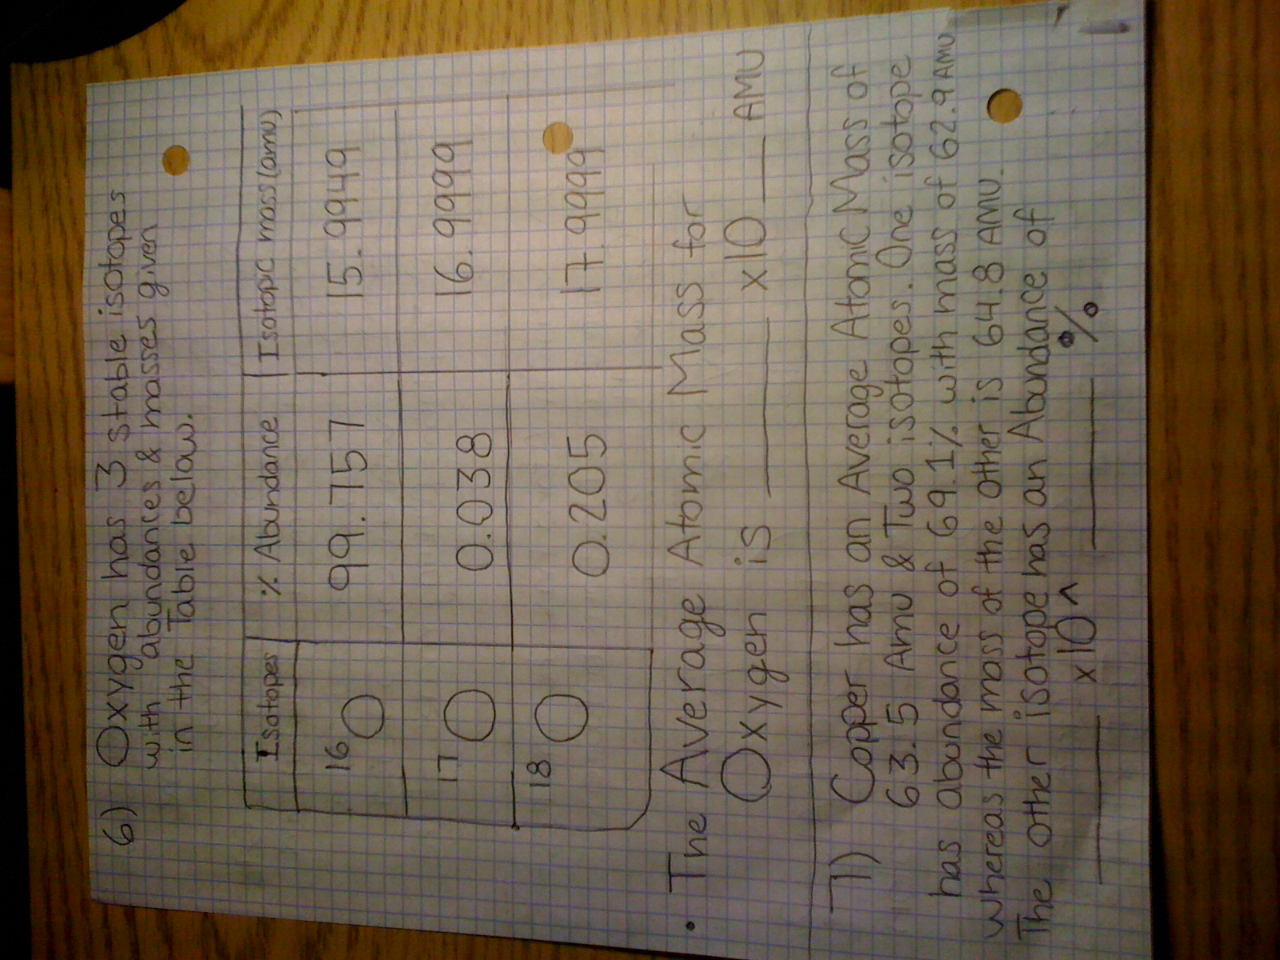 6) Oxygen has 3 stable isotopes
with abundances & masses given
in the Table below.
Isotopes % Abundance Isotopic mass (amu)
16 O 99.757 15.9949
17 O 0.038 16.9999
18 O 0.205 17.9999
• The Average Atomic Mass for
Oxygen is ______ x10 ___ AMU
7) Copper has an Average Atomic Mass of
63.5 Amu & Two isotopes. One isotope
has abundance of 69.1% with mass of 62.9 AMU.
whereas the mass of the other is 64.8 AMU.
The other isotope has an Abundance of
______ x10^ ______ %